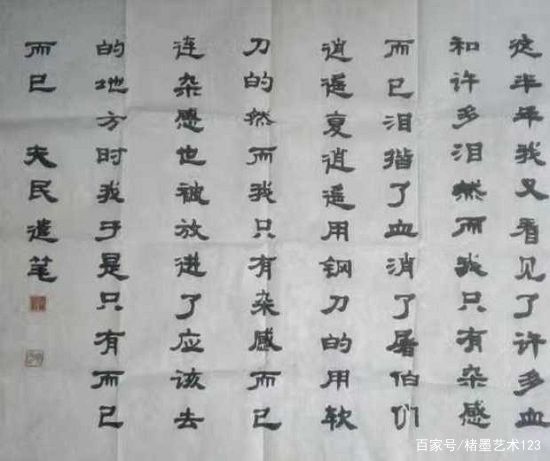 这半年我又看见了许多血
和许多泪然而我只有杂感
而已泪揩了血消了屠伯们
逍遥复逍遥用钢刀的用软
刀的然而我只有杂感而已
连杂感也被放进了应该去
的地方时我于是只有而已
而已 夫民遣笔
百家号/楮墨艺术123